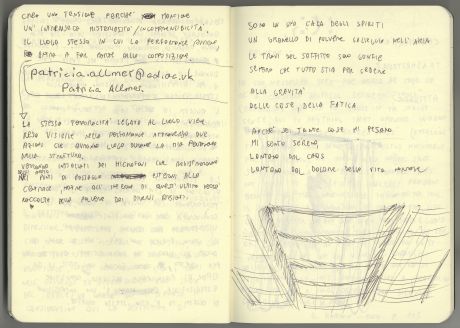 CREO UNA TENSIONE PERCHÉ MANTIENE
UN' INTRINSECA MISTERIOSITÀ / INCOMPRENDICITÀ
IL LUOGO STESSO IN CUI LA PERFORMANCE AVVIENE
ENTRA A FAR PARTE DELLA COMPOSIZIONE.
patricia.allmer@ed.ac.uk
Patricia Allmer
LA STESSA LEGATO AL LUOGO VIENE
RESO VISIBILE NELLA PERFORMANCE ATTRAVERSO DUE
AZIONI CHE AVRANNO LUOGO DURANTE LA MIA PERFORMANCE
NELLA STRUTTURA.
VERRANNO INSTALLATI DEI MICROFONI CHE
NEI PUNTI DI PASSAGGIO ESTERNI ALLO
CERAMICHE ALL'INTERNO DI QUESTI VERRÀ
RACCOLTA DELLA POLVERE DAI DIVERSI
SONO IN UNA CASA DEGLI SPIRITI
UN GRANELLO DI POLVERE SOLLEVATO NELL'ARIA
LE TRAVI DEL SOFFITTO SON GONFIE
SEMBRA CHE TUTTO STIA PER CEDERE
ALLA GRAVITÀ
DELLE COSE, DELLA FATICA
ANCHE SE TANTE COSE MI PESANO
MI SENTO SERENO,
LONTANO DAL CAOS
LONTANO DAL DOLORE DELLA VITA